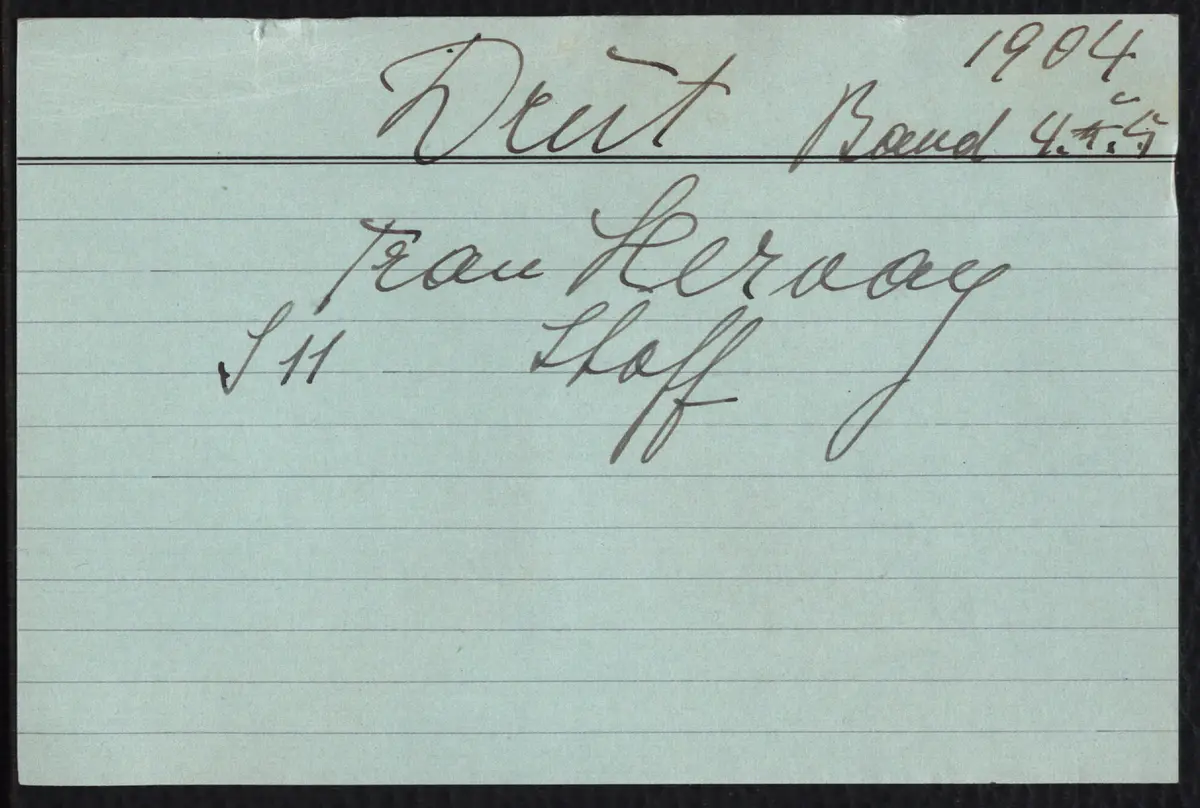 1904
Deut Band 4. u. 5
Frau Hervay
S 11 Stoff